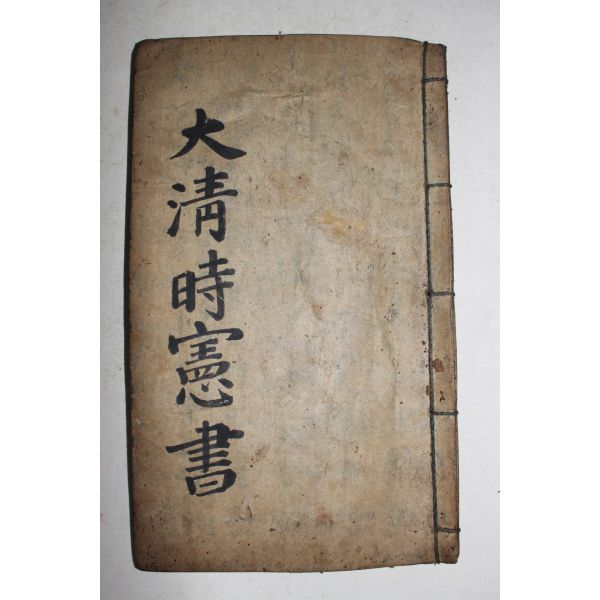 大清時憲書